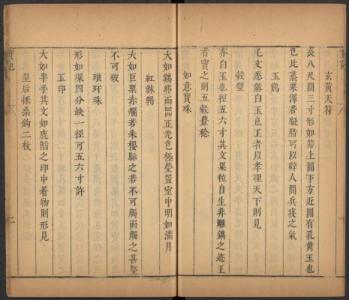 玄黃天符
長八尺闊三寸形如笏上圓下方近圓有孔黃玉也
色比蒸栗澤若凝脂可以辟人間兵疫之氣
玉鷄
毛文悉備白玉色王者以孝理天下則見
穀璧
亦白玉也徑五六寸其文粟粒自生非雕鐫之迹王
者寶之則五穀豐稔
如意寶珠
大如鷄卵而圓正光色極瑩置室中明如滿月
紅靺鞨
大如巨栗赤爛若朱櫻視之若不可觸而觸之甚堅
不可破
瑯玕珠
形如環四分缺一徑可五六寸許
玉印
大如半手其文如鹿陷之印中著物則形見
皇后採桑鈎二枚